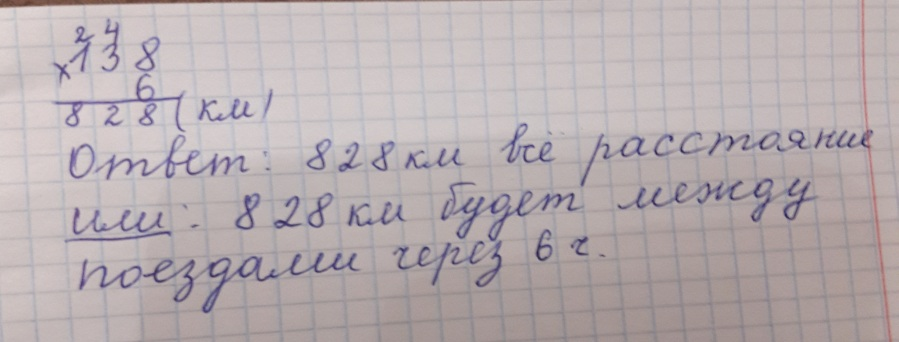 2 4
×138
6
828(км)
Ответ: 828км всё расстояние
или: 828км будет между
поездами через 6 ч.